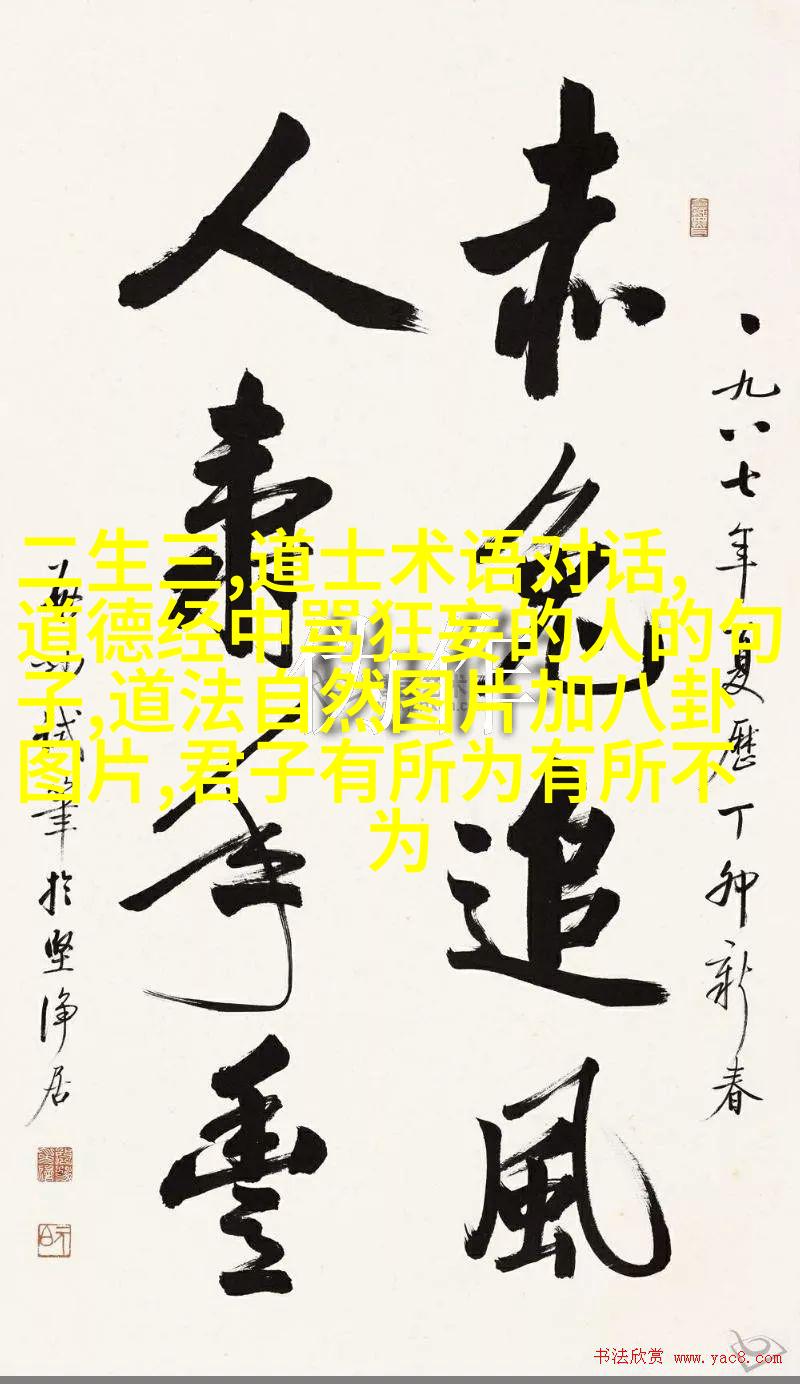 一九八七年夏歷丁卯新春
赤兔追風
人壽年豐
試筆於坚净居
二生三,道士术语对话,
道德经中骂狂妄的人的句
子,道法自然图片加八卦
图片,君子有所为有所不
为
书法欣赏 www.yac8.com